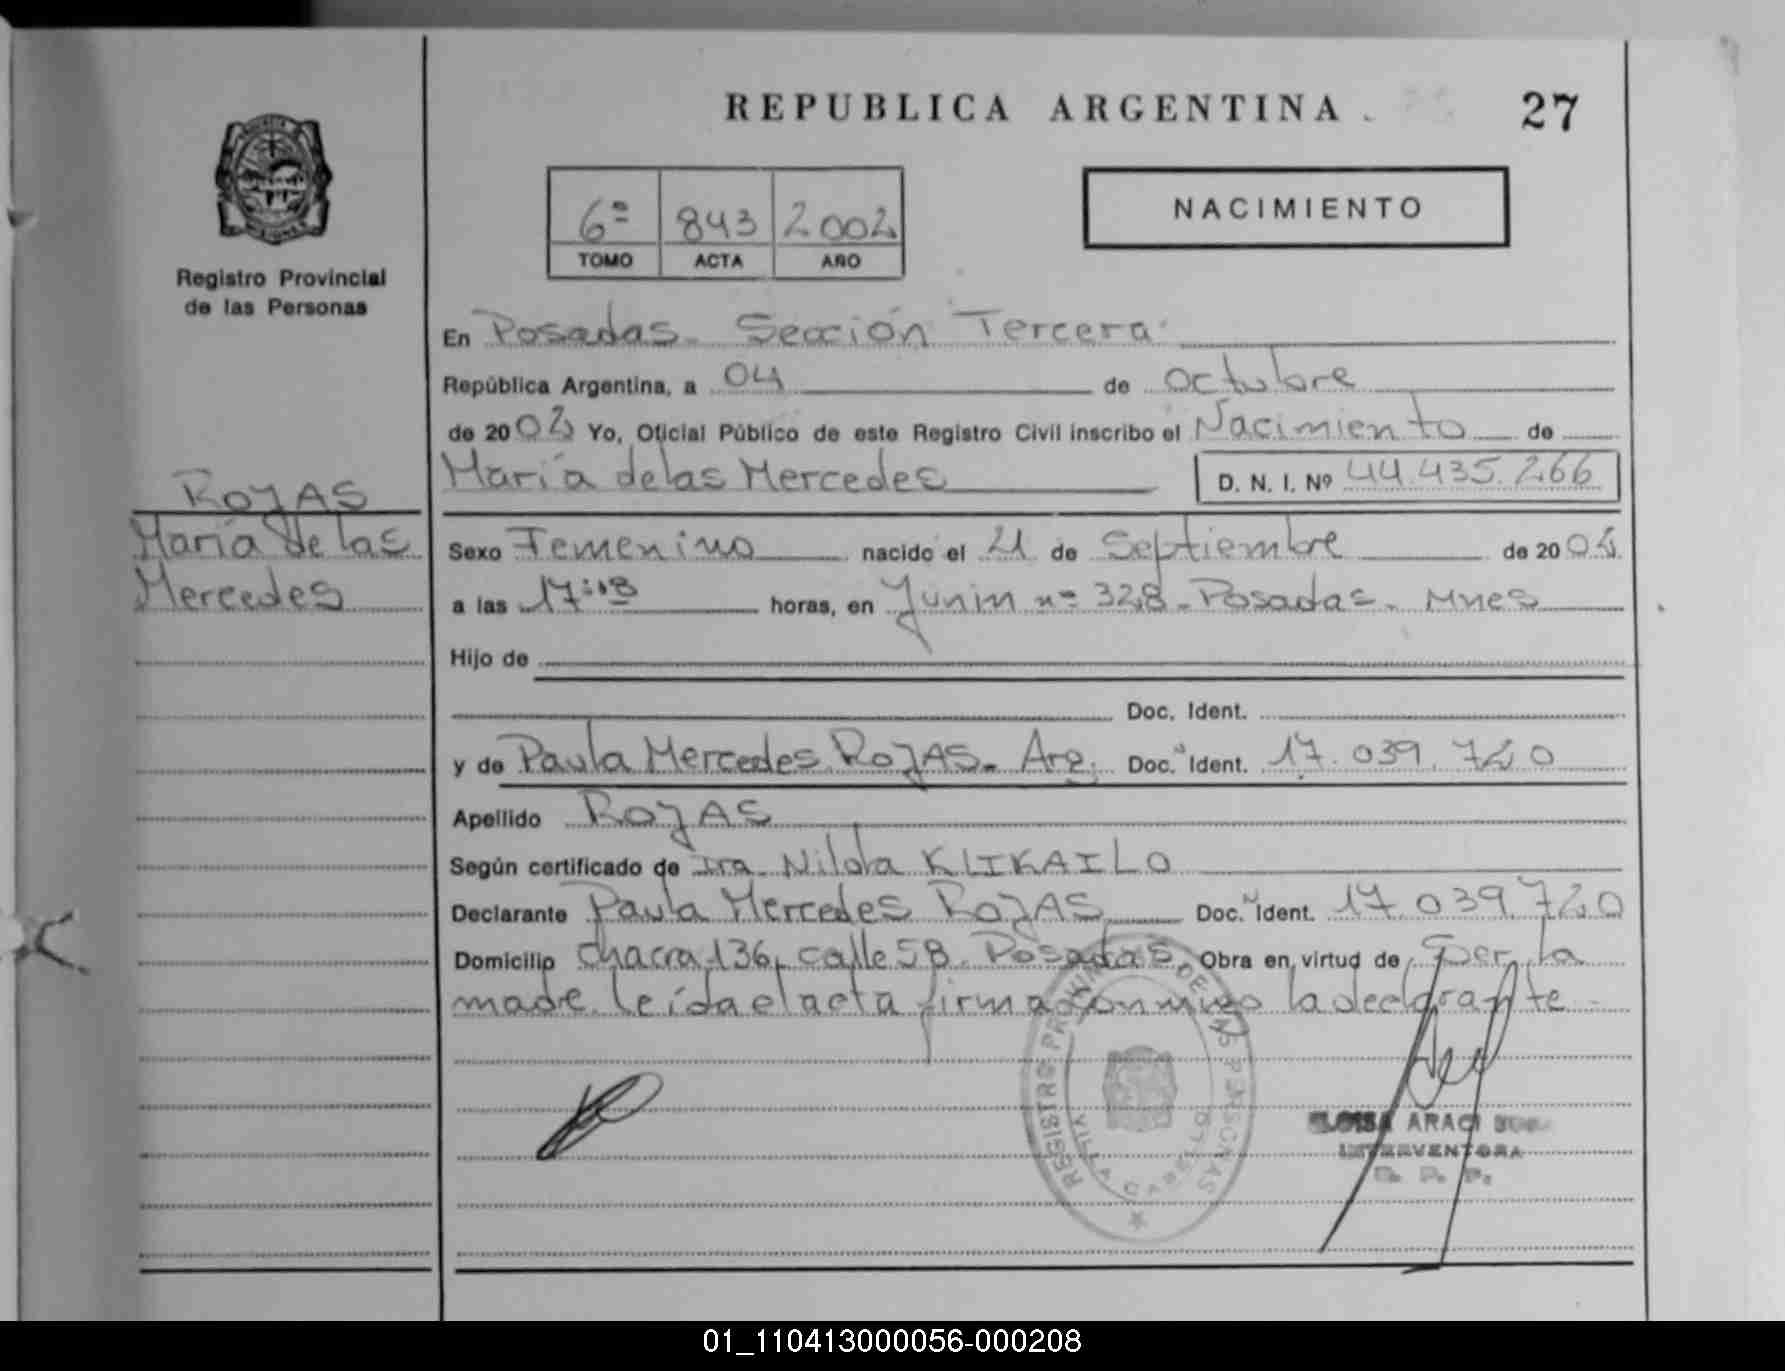 REPUBLICA ARGENTINA
27
Registro Provincial
de las Personas
6º 843 2002
TOMO ACTA AÑO
NACIMIENTO
En Posadas - Sección Tercera
República Argentina, a 04 de octubre
de 2002 Yo, Oficial Público de este Registro Civil inscribo el Nacimiento de
María de las Mercedes D. N. I. Nº 44.435.266
ROJAS
María de las
Mercedes
Sexo Femenino nacido el 21 de Septiembre de 2002
a las 17:18 horas, en Junin nº 328 - Posadas - Mnes
Hijo de
Doc. Ident.
y de Paula Mercedes ROJAS - Arg. Doc. Ident. 17.039.720
Apellido ROJAS
Según certificado de Dra. Nilda KLIKAILO
Declarante Paula Mercedes ROJAS Doc. Ident. 17.039.720
Domicilio chacra 136, calle 58 - Posadas Obra en virtud de Ser la
madre leída el acta firma conmigo la declarante -
REGISTRO PROVINCIAL DE LAS PERSONAS
VILLA CABELLO
ARACI
INTERVENTORA
01_110413000056-000208